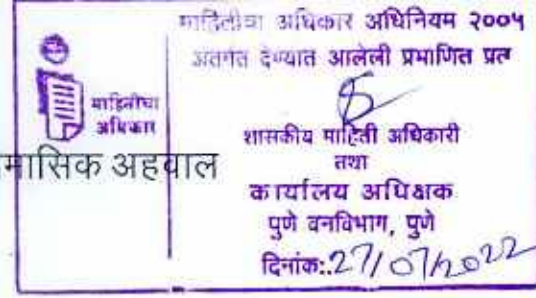 माहितीचा अधिकार अधिनियम २००५
अंतर्गत देण्यात आलेली प्रमाणित प्रत
माहितीचा
अधिकार
मासिक अहवाल
शासकीय माहिती अधिकारी
तथा
कार्यालय अधिक्षक
पुणे वनविभाग, पुणे
दिनांक:.27/07/2022